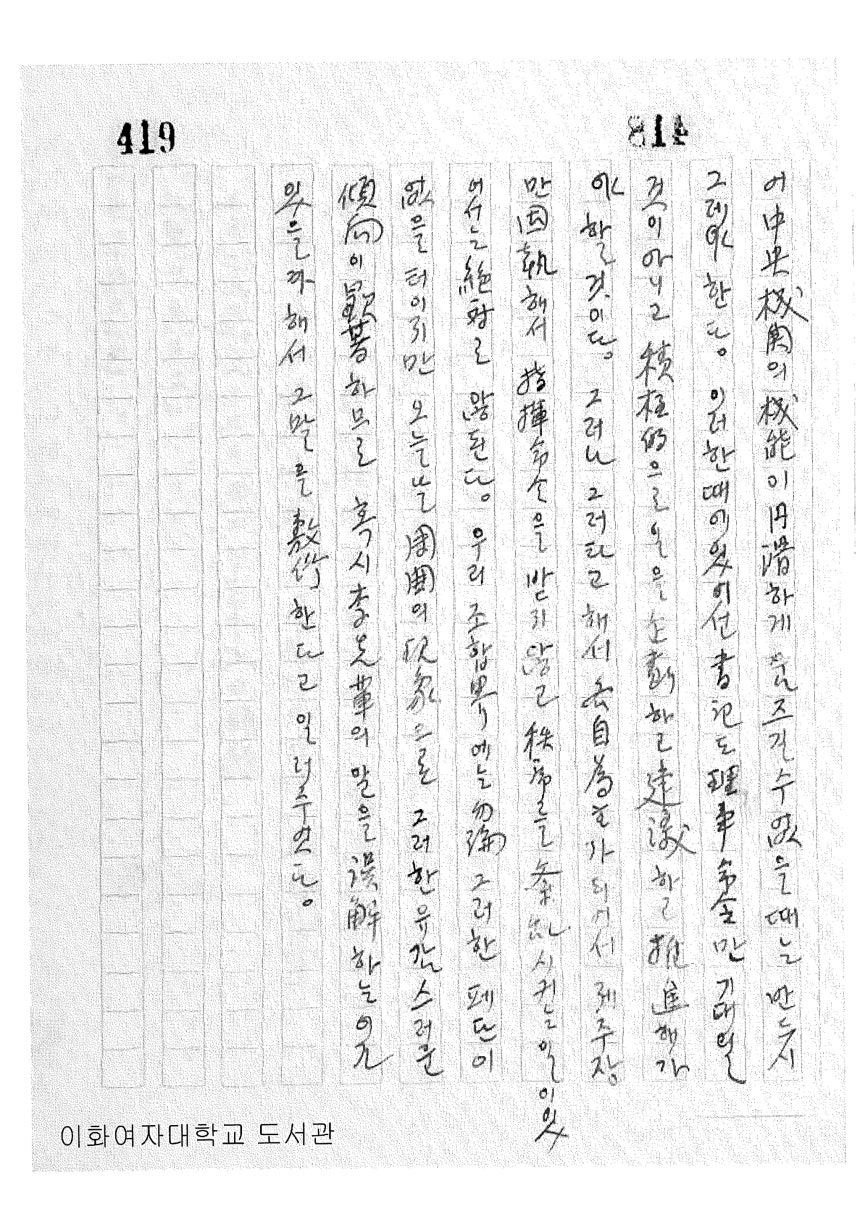 419
814
어 中央機関의 機能이 円滑하게 움즈길수 없을 때는 반드시
그레야 한다。 이러한때에 있어선 書記도 理事 命令만 기대일
것이 아니고 積極的으로 일을 企劃하고 建議하고 推進해가
야 할것이다。 그러나 그러타고 해서 各自為主가 되어서 제주장
만 固執해서 指揮命令을 받지 않고 秩序를 紊乱시키는 일이 있
어서는 絶対로 않된다。 우리 조합界에는 勿論 그러한 폐단이
없을 터이지만 오늘날 周囲의 現象으론 그러한 유감스러운
傾向이 顕著하므로 혹시 李先輩의 말을 誤解하는 이가
있을까 해서 그말을 敷衍한다고 일러주엇다。
이화여자대학교 도서관